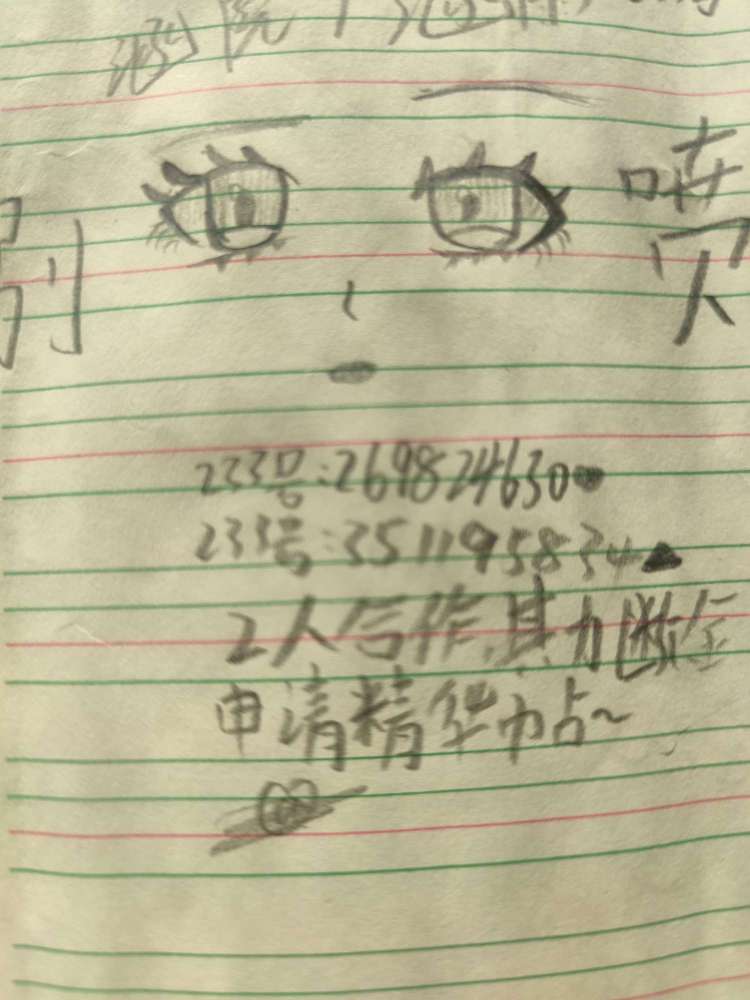 别 喷
233号:269824630
233号:351195834
2人合作,其力断金
申请精华帖~